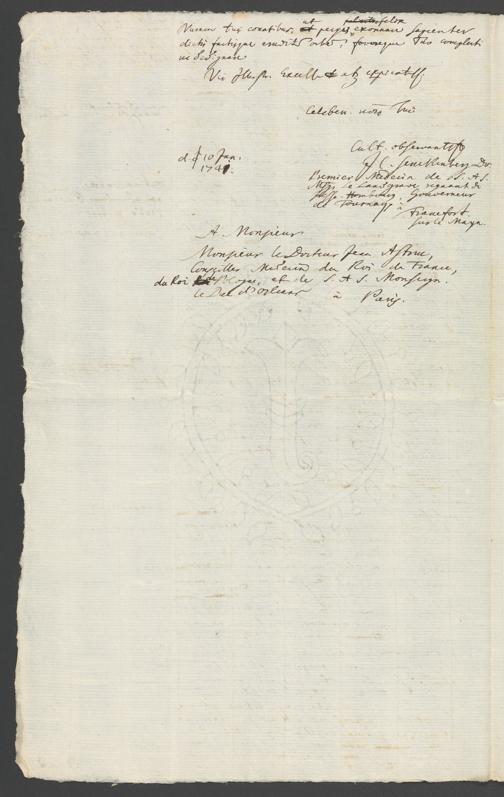 Numen tuis conatibus, ut perges exornare sapienter
dictis factisque eruditum orbem, foveasque Tuo complecti
ne dedignare
Vir Illustr. Excell. et
Celeberr. nom. Tui
Cult. observantiss.
J. C. Senckenberg Dr.
Premier Medecin de S. A. S.
Msgr. le Landgrave regnant de
Hesse Hombourg, Gouverneur
de Tournay.
Francfort
sur le Mayn.
d. 10 Jan.
1741.
A Monsieur
Monsieur le Docteur Jean Astruc,
Conseiller Medecin du Roi de France,
du Roi Pologne, et de S. A. S. Monseign.
le Duc d'Orleans
à Paris.